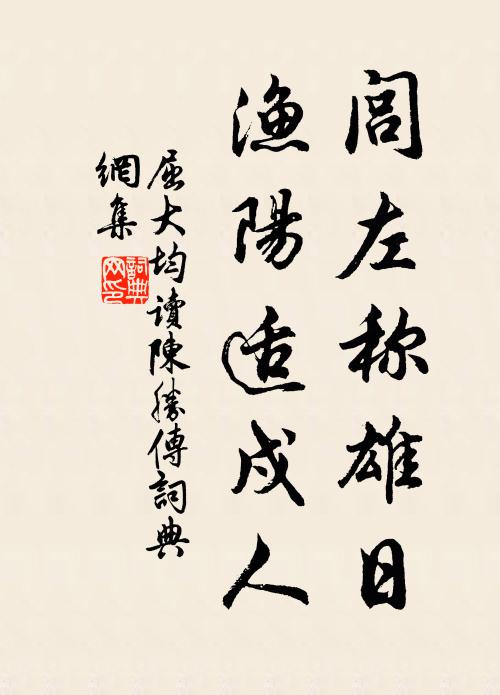 闾左称雄日
渔陽适戍人
屈大均讀陳勝傳詞典
網集
詞典網印